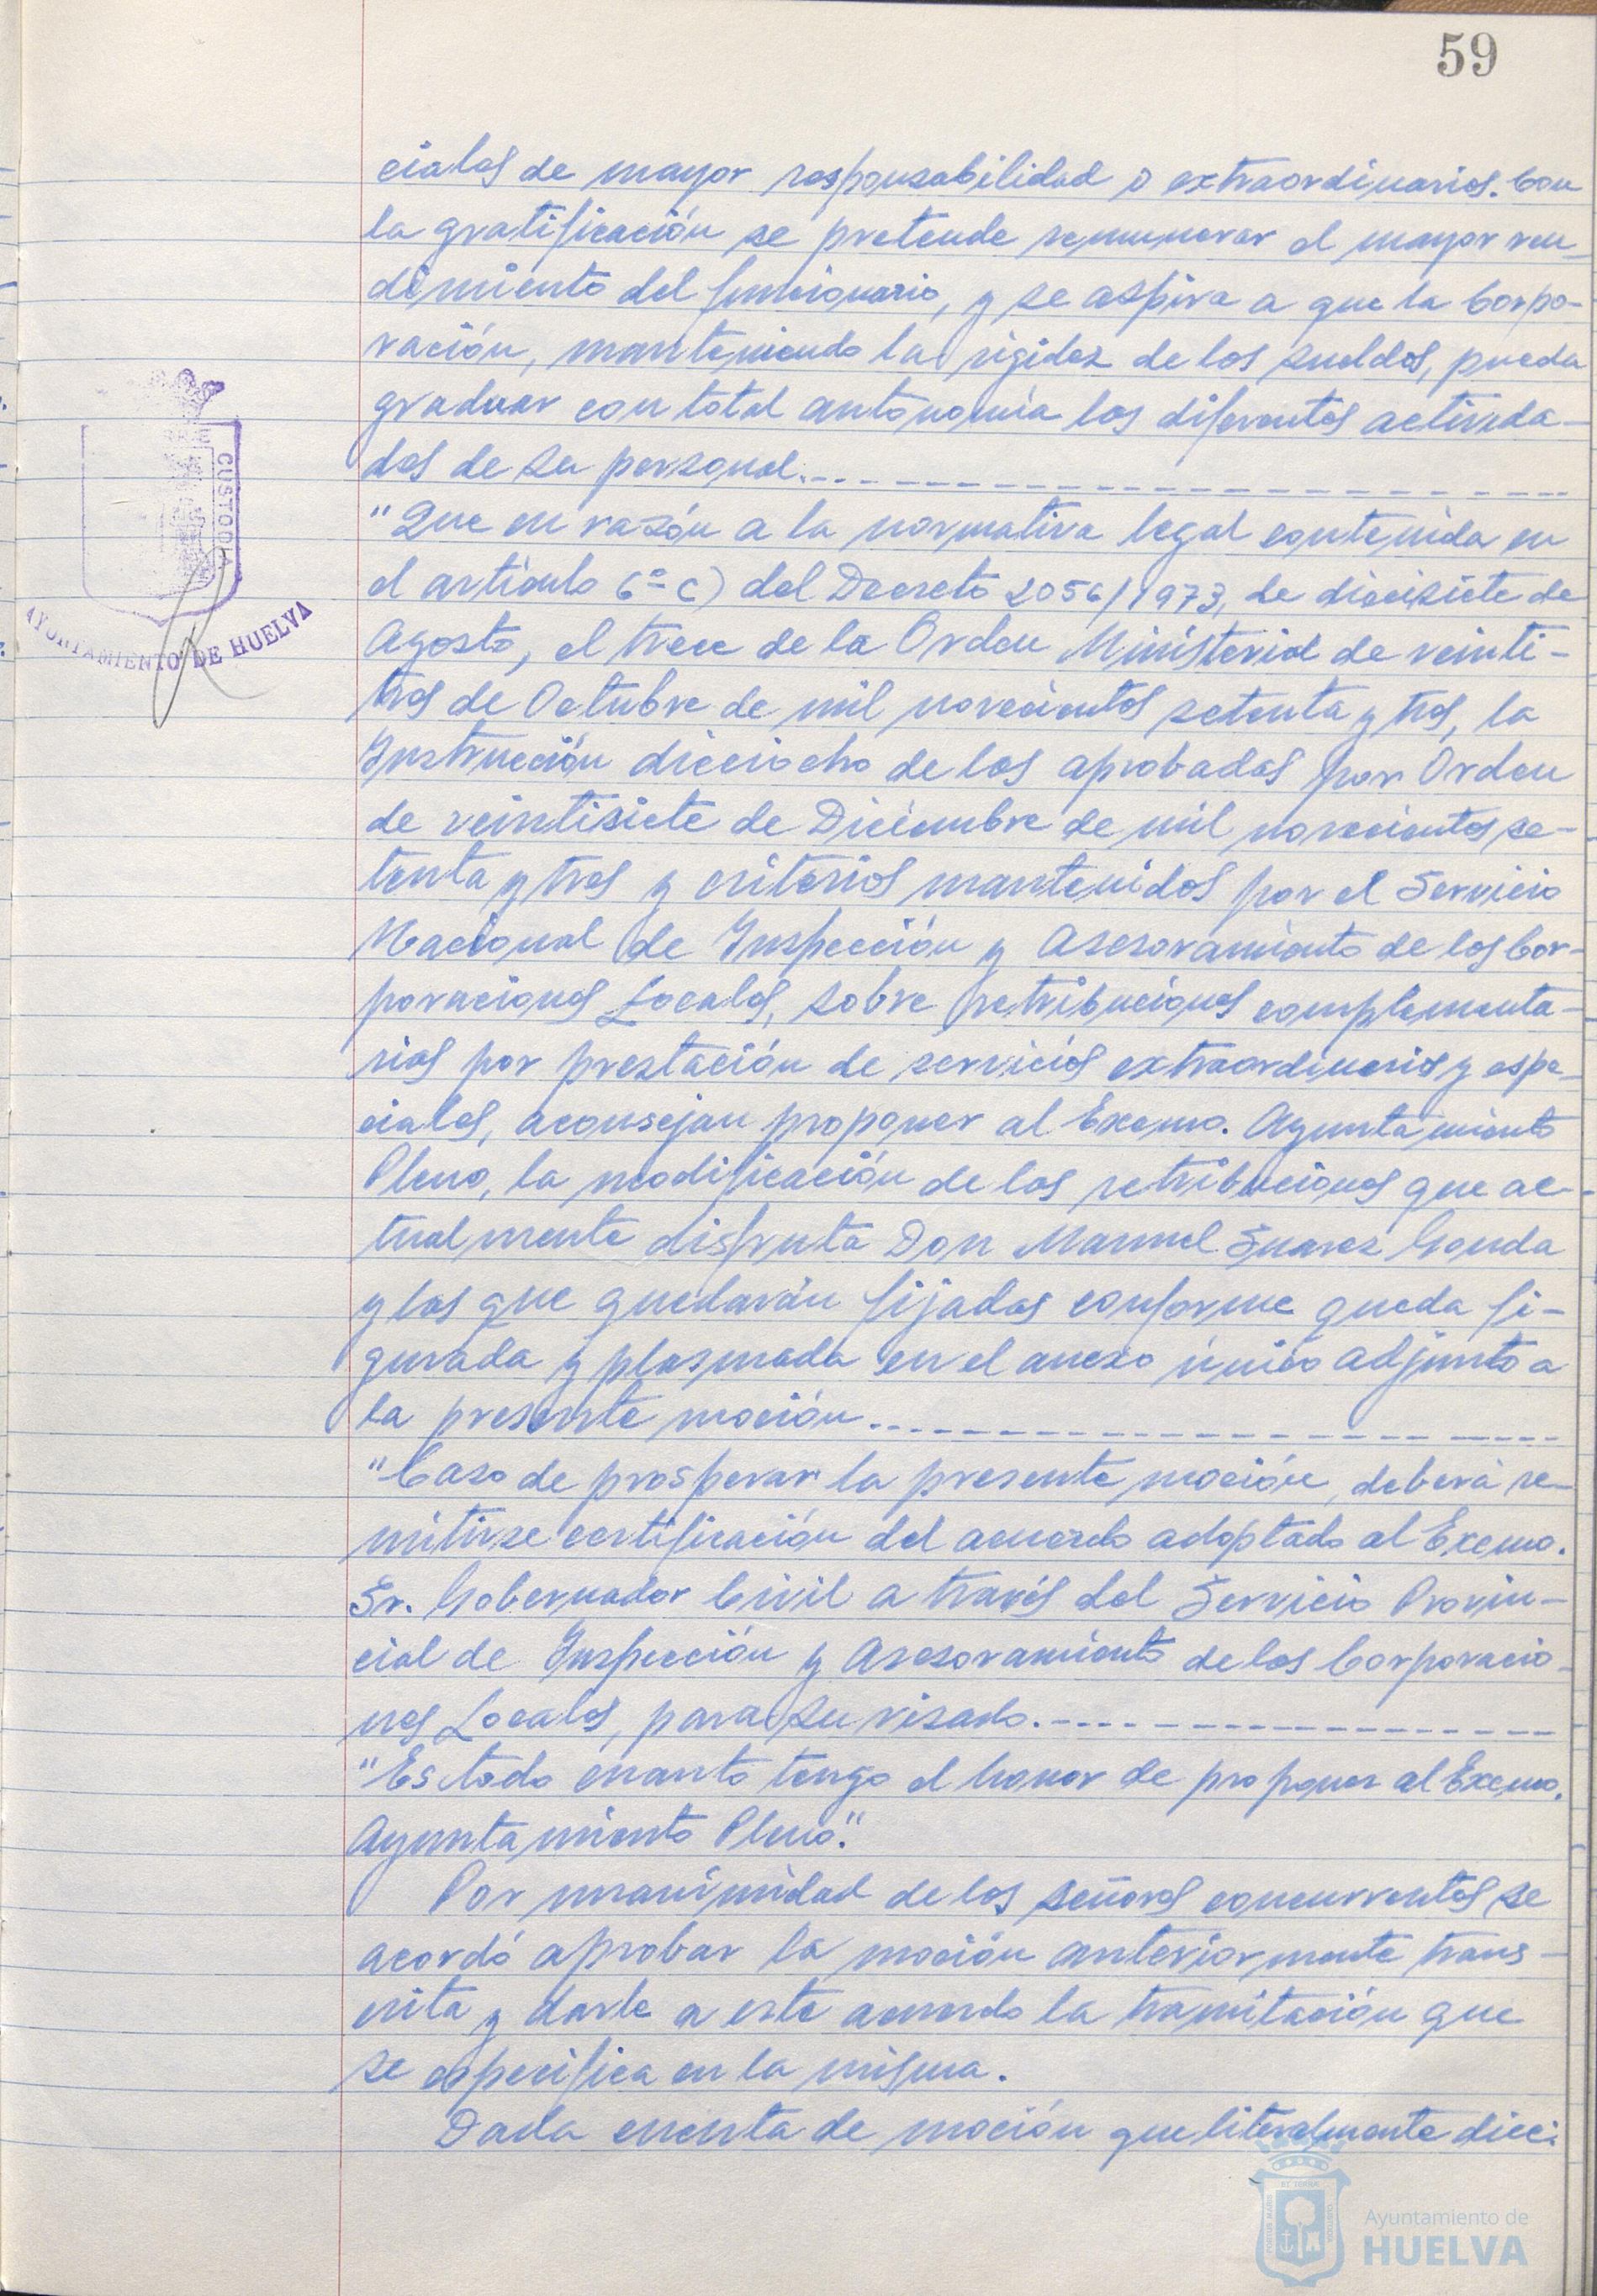 59
ciales de mayor responsabilidad o extraordinarios. Con
la gratificación se pretende remunerar el mayor ren-
dimiento del funcionario, y se aspira a que la Corpo-
ración, manteniendo la rigidez de los sueldos, pueda
graduar con total autonomía las diferentes activida-
des de su personal.
"Que en razón a la normativa legal contenida en
el artículo 6º c) del Decreto 2056/1973, de diecisiete de
Agosto, el trece de la Orden Ministerial de veinti-
tres de Octubre de mil novecientos setenta y tres, la
Instrucción dieciocho de las aprobadas por Orden
de veintisiete de Diciembre de mil novecientos se-
tenta y tres y criterios mantenidos por el Servicio
Nacional de Inspección y Asesoramiento de las Cor-
poraciones Locales, sobre retribuciones complementa-
rias por prestación de servicios extraordinarios y espe-
ciales, aconsejan proponer al Excmo. Ayuntamiento
Pleno, la modificación de las retribuciones que ac-
tualmente disfruta Don Manuel Suarez Ganda
y las que quedarán fijadas conforme queda fi-
gurada y plasmada en el anexo único adjunto a
la presente moción.
"Caso de prosperar la presente moción, deberá re-
mitirse certificación del acuerdo adoptado al Excmo.
Sr. Gobernador Civil a través del Servicio Provin-
cial de Inspección y Asesoramiento de las Corporacio-
nes Locales, para su visado.
"Es todo cuanto tengo el honor de proponer al Excmo.
Ayuntamiento Pleno".
Por unanimidad de los señores concurrentes se
acordó aprobar la moción anteriormente trans-
crita y darle a este acuerdo la tramitación que
se especifica en la misma.
Dada cuenta de moción que literalmente dice:
CUSTODIA
AYUNTAMIENTO DE HUELVA
Ayuntamiento de
HUELVA